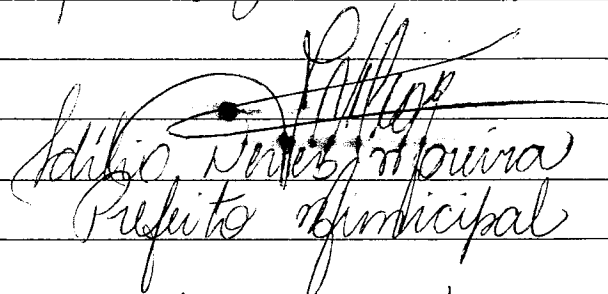 Adílio Neves Moreira
Prefeito Municipal